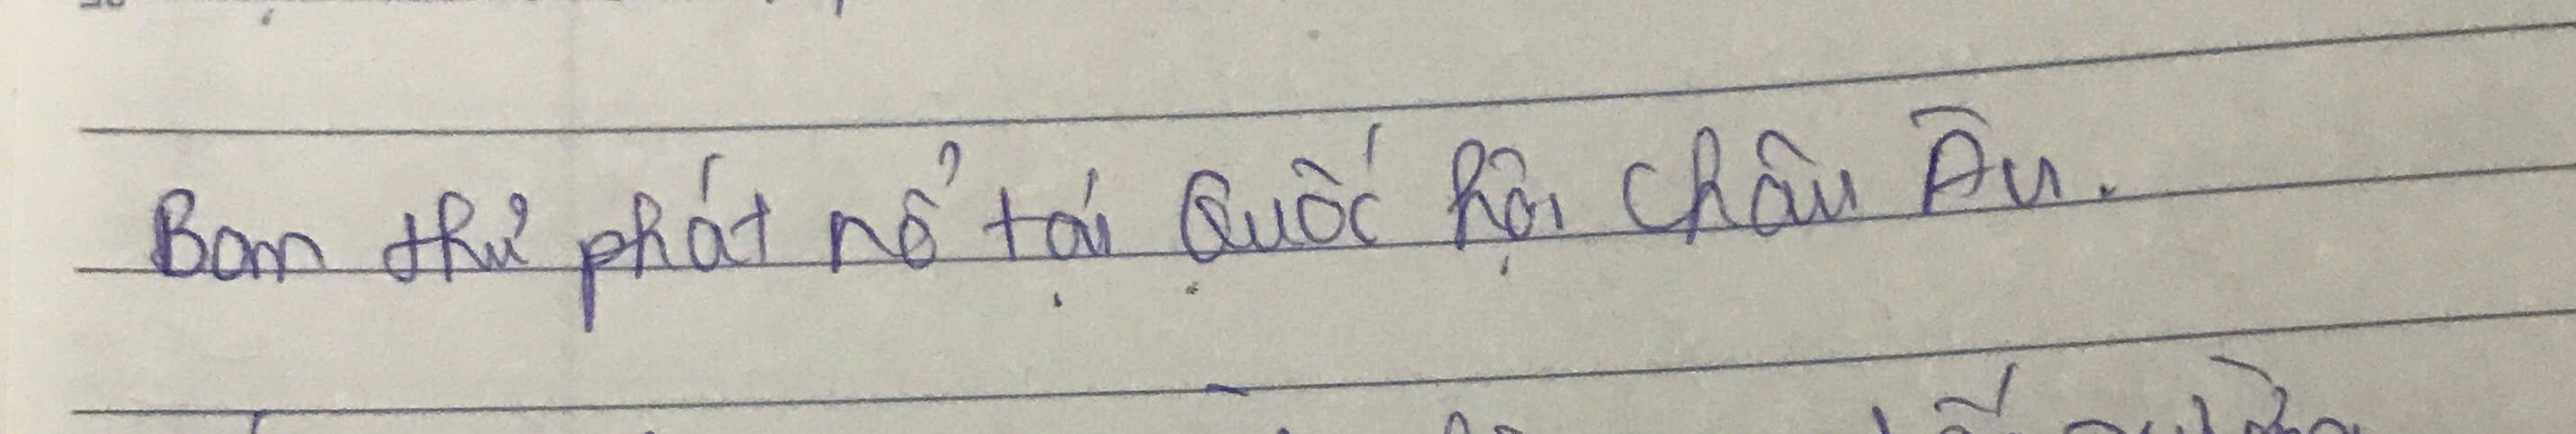 Bom thư phát nổ tại Quốc hội Châu Âu.